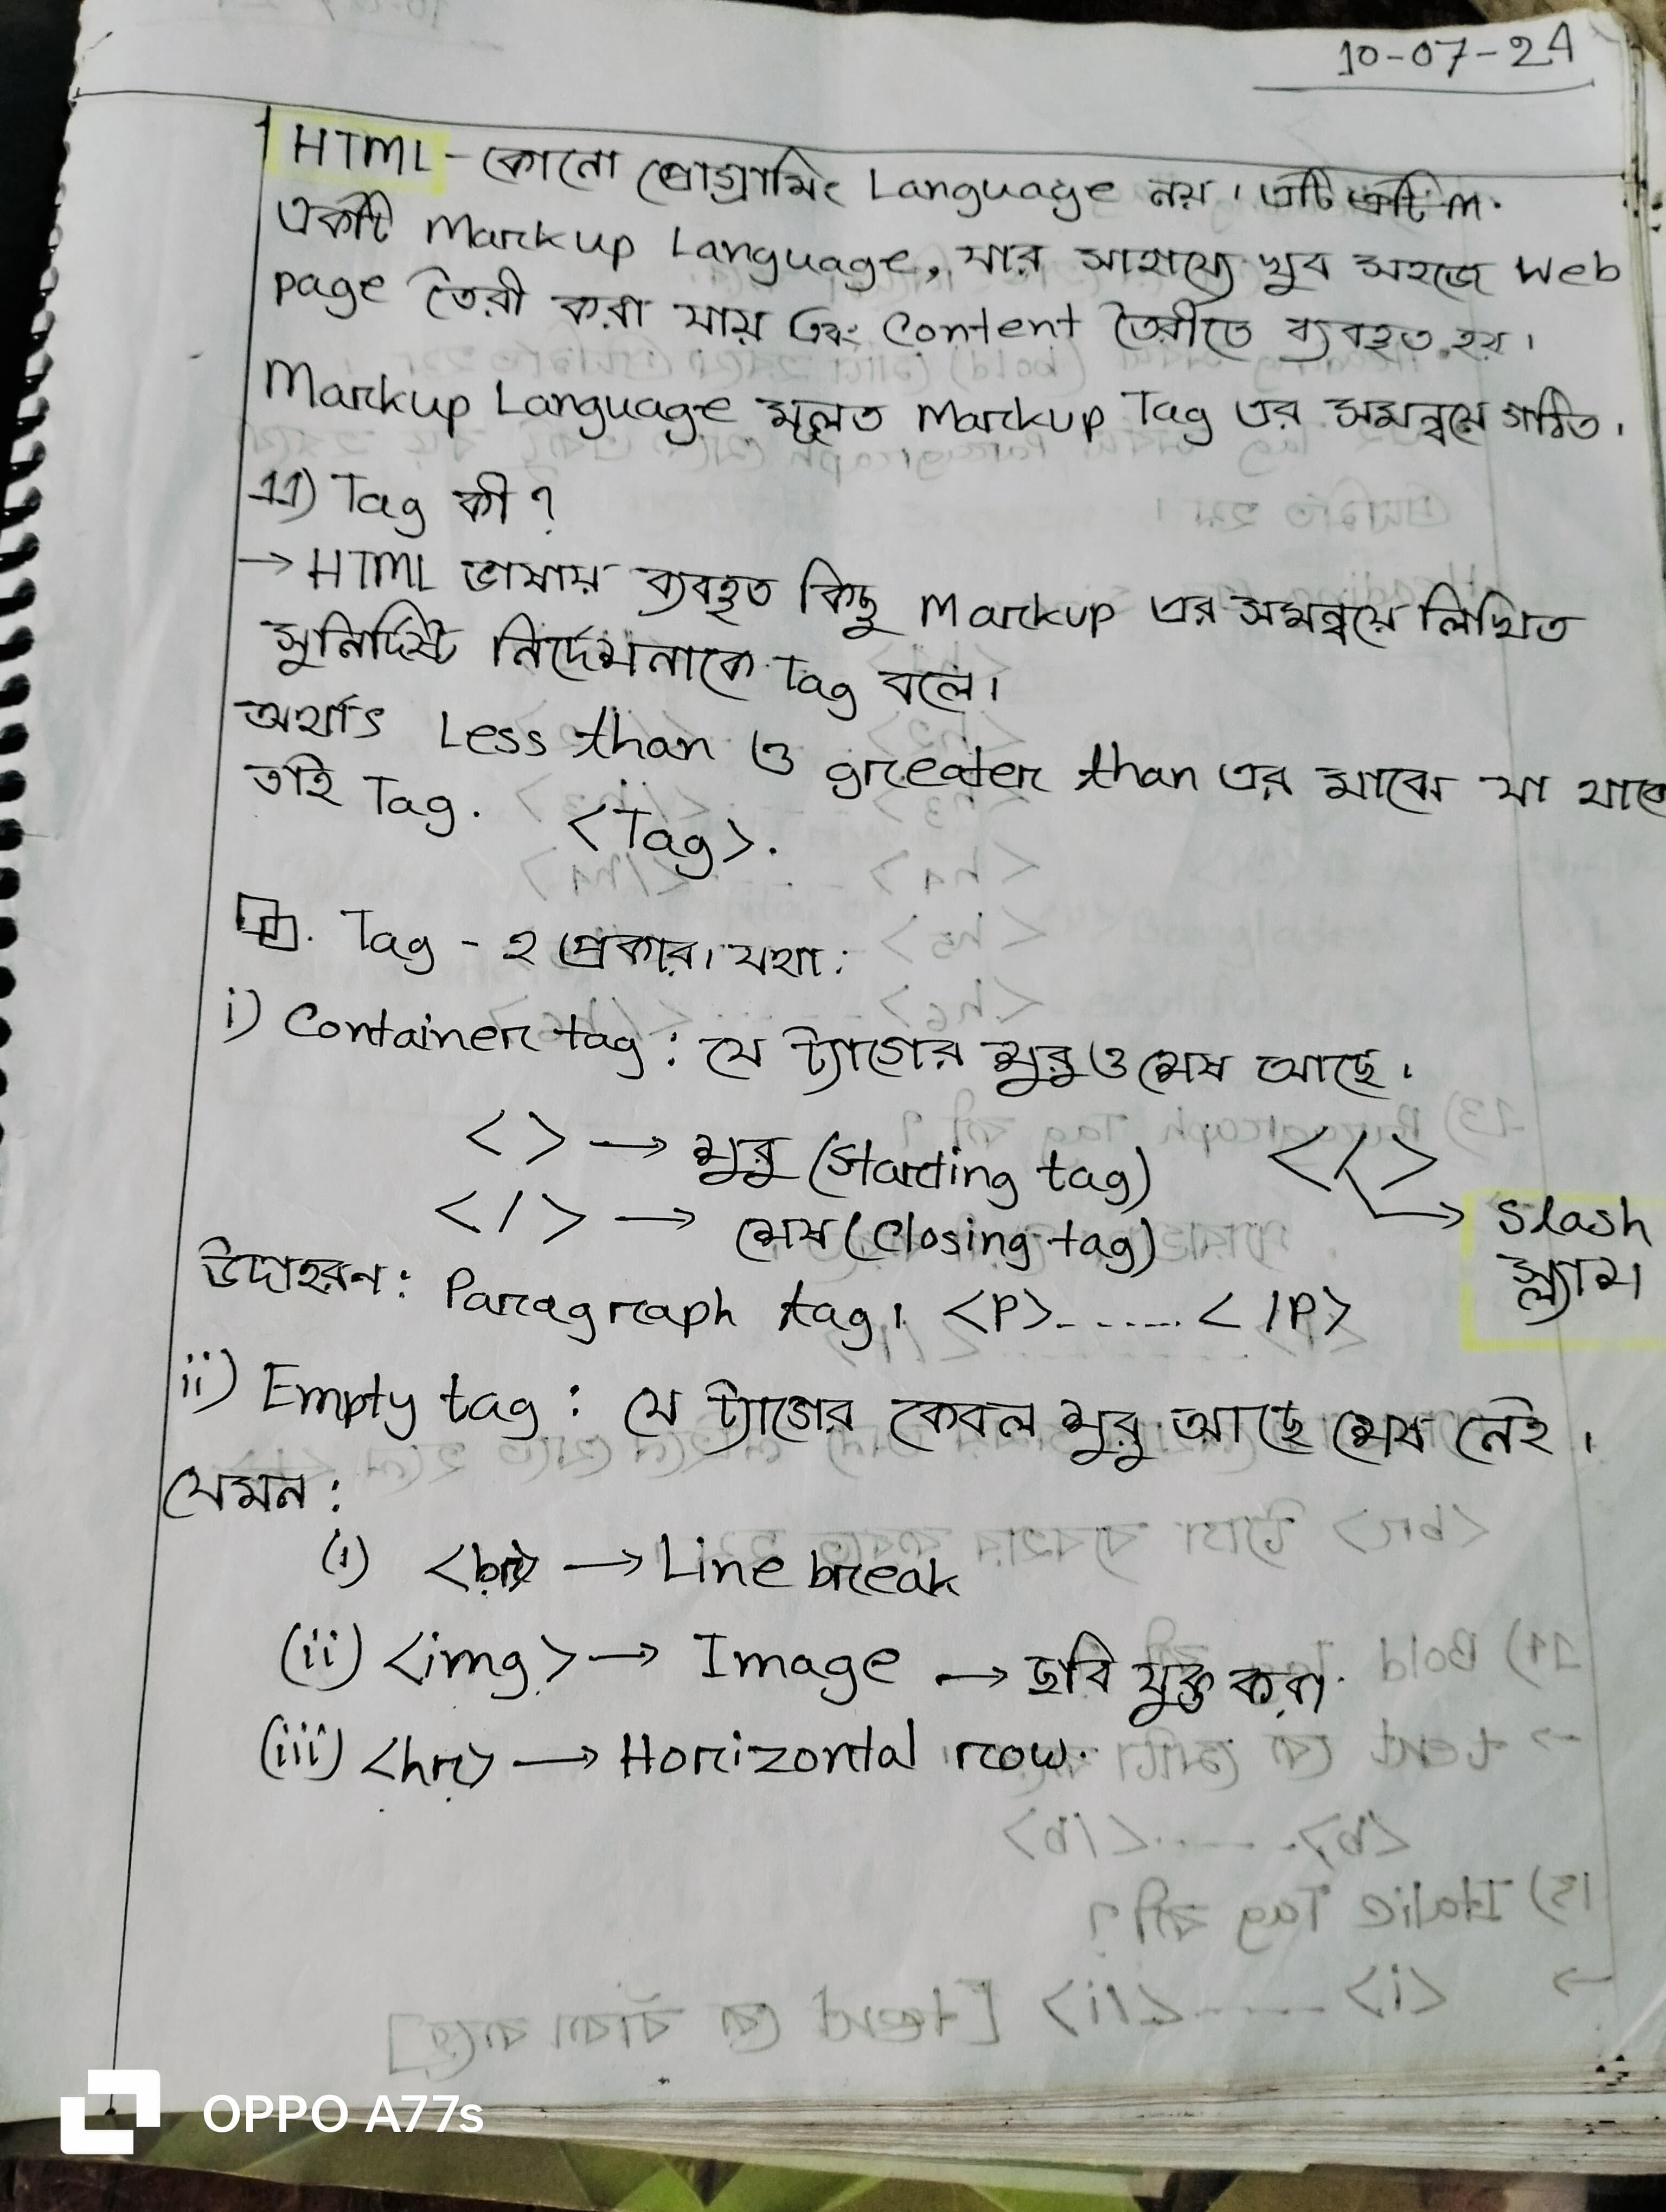 10-07-24
HTML - কোনো প্রোগ্রামিং Language নয়। এটি একটি m.
একটি Markup Language, যার সাহায্যে খুব সহজে Web
page তৈরী করা যায় এবং Content তৈরীতে ব্যবহৃত হয়।
Markup Language মূলত Markup Tag এর সমন্বয়ে গঠিত।
11) Tag কী?
→ HTML ভাষায় ব্যবহৃত কিছু Markup এর সমন্বয়ে লিখিত
সুনির্দিষ্ট নির্দেশনাকে Tag বলে।
অর্থাৎ Less than ও greater than এর মাঝে যা থাকে
তাই Tag. <Tag>.
Tag - ২ প্রকার। যথা:
i) Container tag: যে ট্যাগের শুরু ও শেষ আছে।
<> → শুরু (Starting tag) </>
</> → শেষ (Closing tag) → Slash
স্ল্যাশ
উদাহরন: Paragraph tag। <P>.......</P>
ii) Empty tag: যে ট্যাগের কেবল শুরু আছে শেষ নেই।
যেমন:
(i) <br> → Line break
(ii) <img> → Image → ছবি যুক্ত করা
(iii) <hr> → Horizontal row.
OPPO A77s